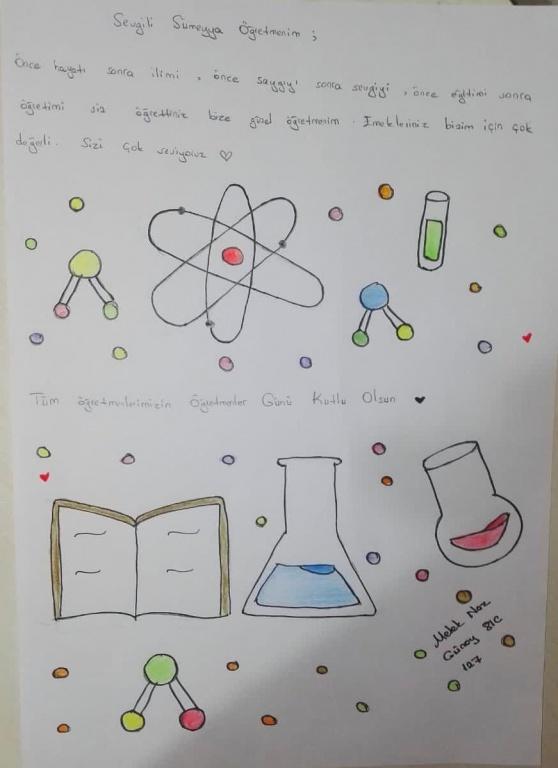 Sevgili Sümeyya Öğretmenim ;
Önce hayatı sonra ilimi , önce saygıyı sonra sevgiyi , önce eğitimi sonra
öğretimi siz öğrettiniz bize güzel öğretmenim . Emekleriniz bizim için çok
değerli . Sizi çok seviyoruz ♡
Tüm öğretmenlerimizin Öğretmenler Günü Kutlu Olsun ♥
Melek Naz
Günay 8/C
127